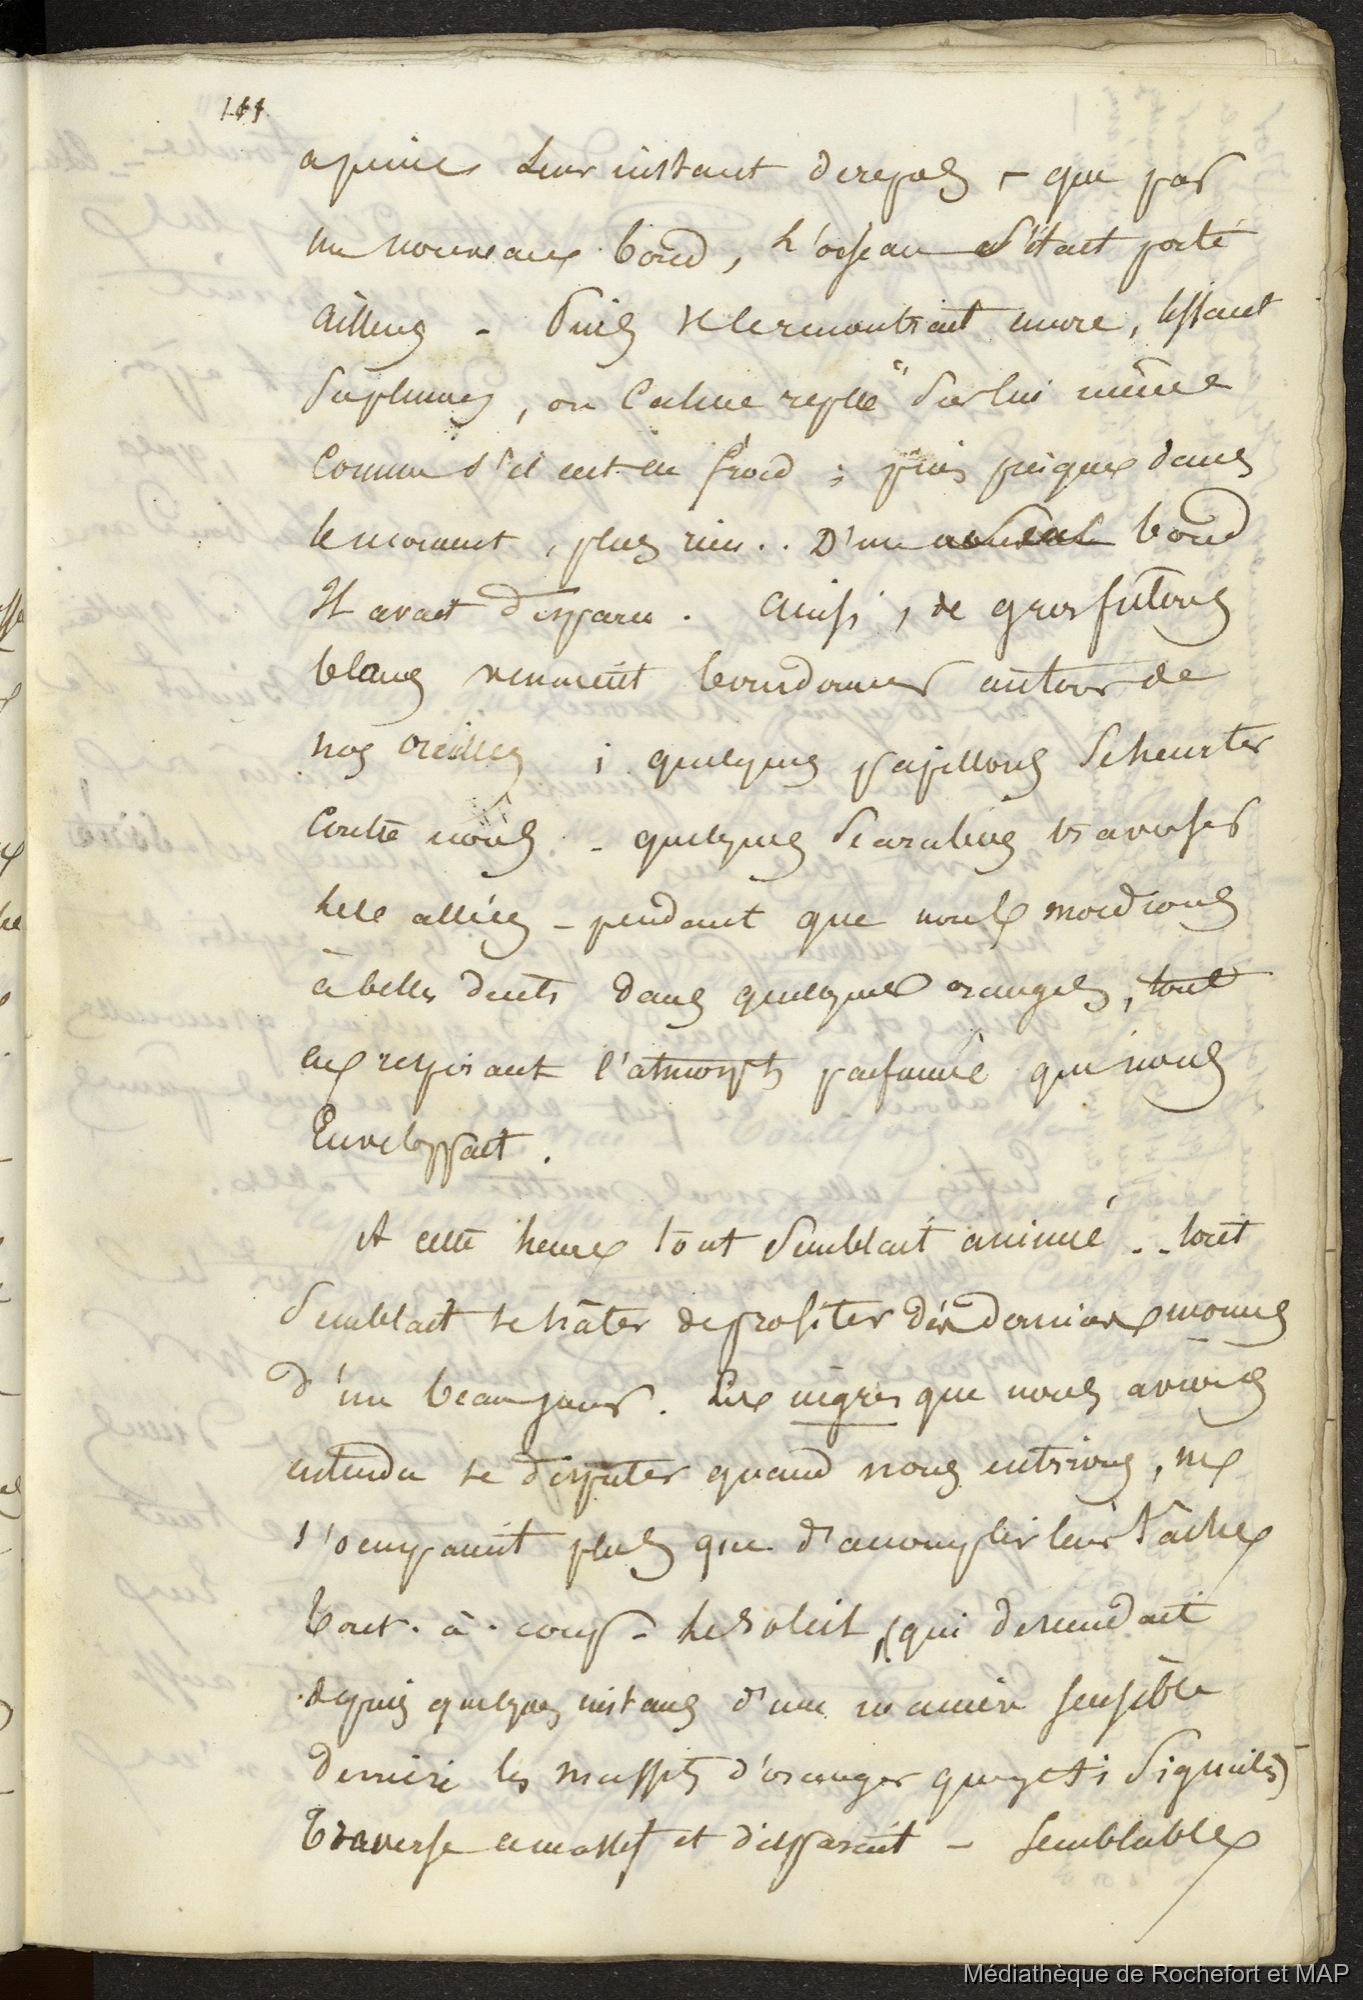 144
a peine leur instant de repos, que par
un nouveau bond, l'oiseau s'était porté
ailleurs - Puis se remontrait encore, lissant
ses plumes, ou calme replié sur lui même
comme s'il eut eu froid ; puis presque dans
le moment, plus rien.. D'un seul bond
Il avait disparu. Ainsi, de gros
blancs venaient bourdonner autour de
nos oreilles ; quelques papillons se heurter
contre nous - quelques scarabées traverser
les allées - pendant que nous mordions
à belles dents dans quelques oranges, tout
en respirant l'atmosph parfumée qui nous
Enveloppait.
A cette heure tout semblait animé .. tout
semblait se hâter de profiter des derniers momens
d'un beau jour. Les nègres que nous avions
entendu se disputer quand nous entrions, ne
s'occupaient plus que d'accomplir leur tâche
Tout-à-coup - le soleil, (qui descendait
depuis quelques instans d'une manière sensible
derrière les massifs d'oranger que j'ai signalés)
Traverse ce massif et disparait - semblable
Médiathèque de Rochefort et MAP